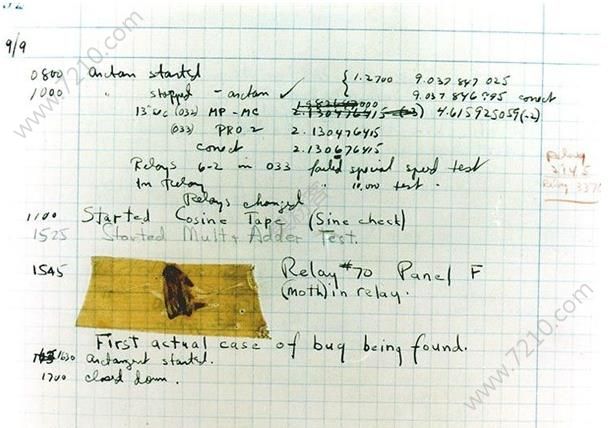 9/9
0800 arctan started
1000 " stopped - arctan ✓ { 1.2700 9.037 847 025
9.037 846 995 correct
13"uc (032) MP - MC 2.130476415 (-3) 4.615925059(-2)
(033) PRO 2 2.130476415
correct 2.130676415
Relays 6-2 in 033 failed special speed test
In Relay " 10,000 test .
Relay
2145
Relay 3370
Relays changed
1100 Started Cosine Tape (Sine check)
1525 Started Mult + Adder Test.
1545 Relay #70 Panel F
(moth) in relay.
First actual case of bug being found.
1630 arctangent started.
1700 closed down.
www.7210.com
www.7210.com